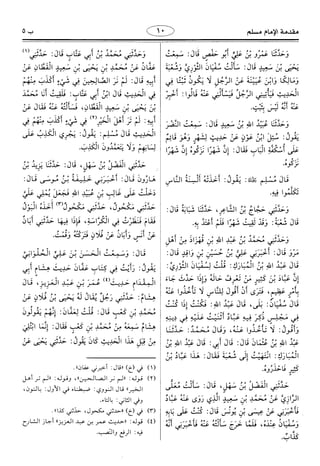 ب ٥
١٠
مقدمة الإمام مسلم
وَحَدَّثَنَا عَمْرُو بْنُ عَلِيٍّ أَبُو حَفْصٍ قَالَ: سَمِعْتُ
يَحْيَى بْنَ سَعِيدٍ قَالَ: سَأَلْتُ سُفْيَانَ الثَّوْرِيَّ وَشُعْبَةَ
وَمَالِكًا وَابْنَ عُيَيْنَةَ عَنْ الرَّجُلِ لَا يَكُونُ ثَبْتًا فِي
الْحَدِيثِ فَيَأْتِينِي الرَّجُلُ فَيَسْأَلُنِي عَنْهُ قَالُوا: أَخْبِرْ
عَنْهُ أَنَّهُ لَيْسَ بِثَبْتٍ.
وَحَدَّثَنَا عُبَيْدُ اللَّهِ بْنُ سَعِيدٍ قَالَ: سَمِعْتُ النَّضْرَ
يَقُولُ: سُئِلَ ابْنُ عَوْنٍ عَنْ حَدِيثٍ لِشَهْرٍ وَهُوَ قَائِمٌ
عَلَى أُسْكُفَّةِ الْبَابِ فَقَالَ: إِنَّ شَهْرًا نَزَكُوهُ إِنَّ شَهْرًا
نَزَكُوهُ.
قَالَ مُسْلِم: يَقُولُ: أَخَذَتْهُ أَلْسِنَةُ النَّاسِ
تَكَلَّمُوا فِيهِ.
وَحَدَّثَنِي حَجَّاجُ بْنُ الشَّاعِرِ، حَدَّثَنَا شَبَابَةُ قَالَ:
قَالَ شُعْبَةُ: وَقَدْ لَقِيتُ شَهْرًا فَلَمْ أَعْتَدَّ بِهِ.
وَحَدَّثَنِي مُحَمَّدُ بْنُ عَبْدِ اللَّهِ بْنِ قُهْزَاذَ مِنْ أَهْلِ
مَرْوَ قَالَ: أَخْبَرَنِي عَلِيُّ بْنُ حُسَيْنِ بْنِ وَاقِدٍ قَالَ:
قَالَ عَبْدُ اللَّهِ بْنُ الْمُبَارَكِ: قُلْتُ لِسُفْيَانَ الثَّوْرِيِّ:
إِنَّ عَبَّادَ بْنَ كَثِيرٍ مَنْ تَعْرِفُ حَالَهُ وَإِذَا حَدَّثَ جَاءَ
بِأَمْرٍ عَظِيمٍ، فَتَرَى أَنْ أَقُولَ لِلنَّاسِ لَا تَأْخُذُوا عَنْهُ
قَالَ سُفْيَانُ: بَلَى، قَالَ عَبْدُ اللَّهِ: فَكُنْتُ إِذَا كُنْتُ
فِي مَجْلِسٍ ذُكِرَ فِيهِ عَبَّادٌ أَثْنَيْتُ عَلَيْهِ فِي دِينِهِ
وَأَقُولُ: لَا تَأْخُذُوا عَنْهُ، وَقَالَ مُحَمَّدٌ: حَدَّثَنَا
عَبْدُ اللَّهِ بْنُ عُثْمَانَ قَالَ: قَالَ أَبِي: قَالَ عَبْدُ اللَّهِ بْنُ
الْمُبَارَكِ: انْتَهَيْتُ إِلَى شُعْبَةَ فَقَالَ: هَذَا عَبَّادُ بْنُ
كَثِيرٍ فَاحْذَرُوهُ.
وَحَدَّثَنِي الْفَضْلُ بْنُ سَهْلٍ، قَالَ: سَأَلْتُ مُعَلًّى
الرَّازِيَّ عَنْ مُحَمَّدِ بْنِ سَعِيدٍ الَّذِي رَوَى عَنْهُ عَبَّادٌ
فَأَخْبَرَنِي عَنْ عِيسَى بْنِ يُونُسَ قَالَ: كُنْتُ عَلَى بَابِهِ
وَسُفْيَانُ عِنْدَهُ، فَلَمَّا خَرَجَ سَأَلْتُهُ عَنْهُ فَأَخْبَرَنِي أَنَّهُ
كَذَّابٌ.
وَحَدَّثَنِي مُحَمَّدُ بْنُ أَبِي عَتَّابٍ قَالَ: حَدَّثَنِي(١)
عَفَّانُ عَنْ مُحَمَّدِ بْنِ يَحْيَى بْنِ سَعِيدٍ الْقَطَّانِ عَنْ
أَبِيهِ قَالَ: لَمْ نَرَ الصَّالِحِينَ فِي شَيْءٍ أَكْذَبَ مِنْهُمْ
فِي الْحَدِيثِ قَالَ ابْنُ أَبِي عَتَّابٍ: فَلَقِيتُ أَنَا مُحَمَّدَ
بْنَ يَحْيَى بْنِ سَعِيدٍ الْقَطَّانِ، فَسَأَلْتُهُ عَنْهُ فَقَالَ عَنْ
أَبِيهِ: لَمْ تَرَ أَهْلَ الْخَيْرِ(٢) فِي شَيْءٍ أَكْذَبَ مِنْهُمْ فِي
الْحَدِيثِ قَالَ مُسْلِم: يَقُولُ: يَجْرِي الْكَذِبُ عَلَى
لِسَانِهِمْ وَلَا يَتَعَمَّدُونَ الْكَذِبَ.
حَدَّثَنِي الْفَضْلُ بْنُ سَهْلٍ، قَالَ: حَدَّثَنَا يَزِيدُ بْنُ
هَارُونَ قَالَ: أَخْبَرَنِي خَلِيفَةُ بْنُ مُوسَى قَالَ:
دَخَلْتُ عَلَى غَالِبِ بْنِ عُبَيْدِ اللَّهِ فَجَعَلَ يُمْلِي عَلَيَّ
حَدَّثَنِي مَكْحُولٌ، حَدَّثَنِي مَكْحُولٌ(٣) فَأَخَذَهُ الْبَوْلُ
فَقَامَ فَنَظَرْتُ فِي الْكُرَّاسَةِ، فَإِذَا فِيهَا حَدَّثَنِي أَبَانٌ
عَنْ أَنَسٍ وَأَبَانُ عَنْ فُلَانٍ فَتَرَكْتُهُ وَقُمْتُ.
قَالَ: وَسَمِعْتُ الْحَسَنَ بْنَ عَلِيٍّ الْحُلْوَانِيَّ
يَقُولُ: رَأَيْتُ فِي كِتَابِ عَفَّانَ حَدِيثَ هِشَامٍ أَبِي
الْمِقْدَامِ حَدِيثَ(٤) عُمَرَ بْنِ عَبْدِ الْعَزِيزِ، قَالَ
هِشَامٌ: حَدَّثَنِي رَجُلٌ يُقَالُ لَهُ يَحْيَى بْنُ فُلَانٍ عَنْ
مُحَمَّدِ بْنِ كَعْبٍ قَالَ: قُلْتُ لِعَفَّانَ: إِنَّهُمْ يَقُولُونَ
هِشَامٌ سَمِعَهُ مِنْ مُحَمَّدِ بْنِ كَعْبٍ فَقَالَ: إِنَّمَا ابْتُلِيَ
مِنْ قِبَلِ هَذَا الْحَدِيثِ كَانَ يَقُولُ: حَدَّثَنِي يَحْيَى عَنْ
(١) في (خ) «قال: أخبرني عفان».
(٢) قوله: «لم نر الصالحين»، وقوله: «لم تر أهل
الخير» قال النووي: ضبطناه في الأول: بالنون،
وفي الثاني: بالتاء.
(٣) في (خ) «حدثني مكحول، حدثني كذا».
(٤) قوله: «حديث عمر بن عبد العزيز» أجاز الشارح
فيه: الرفع والنصب.